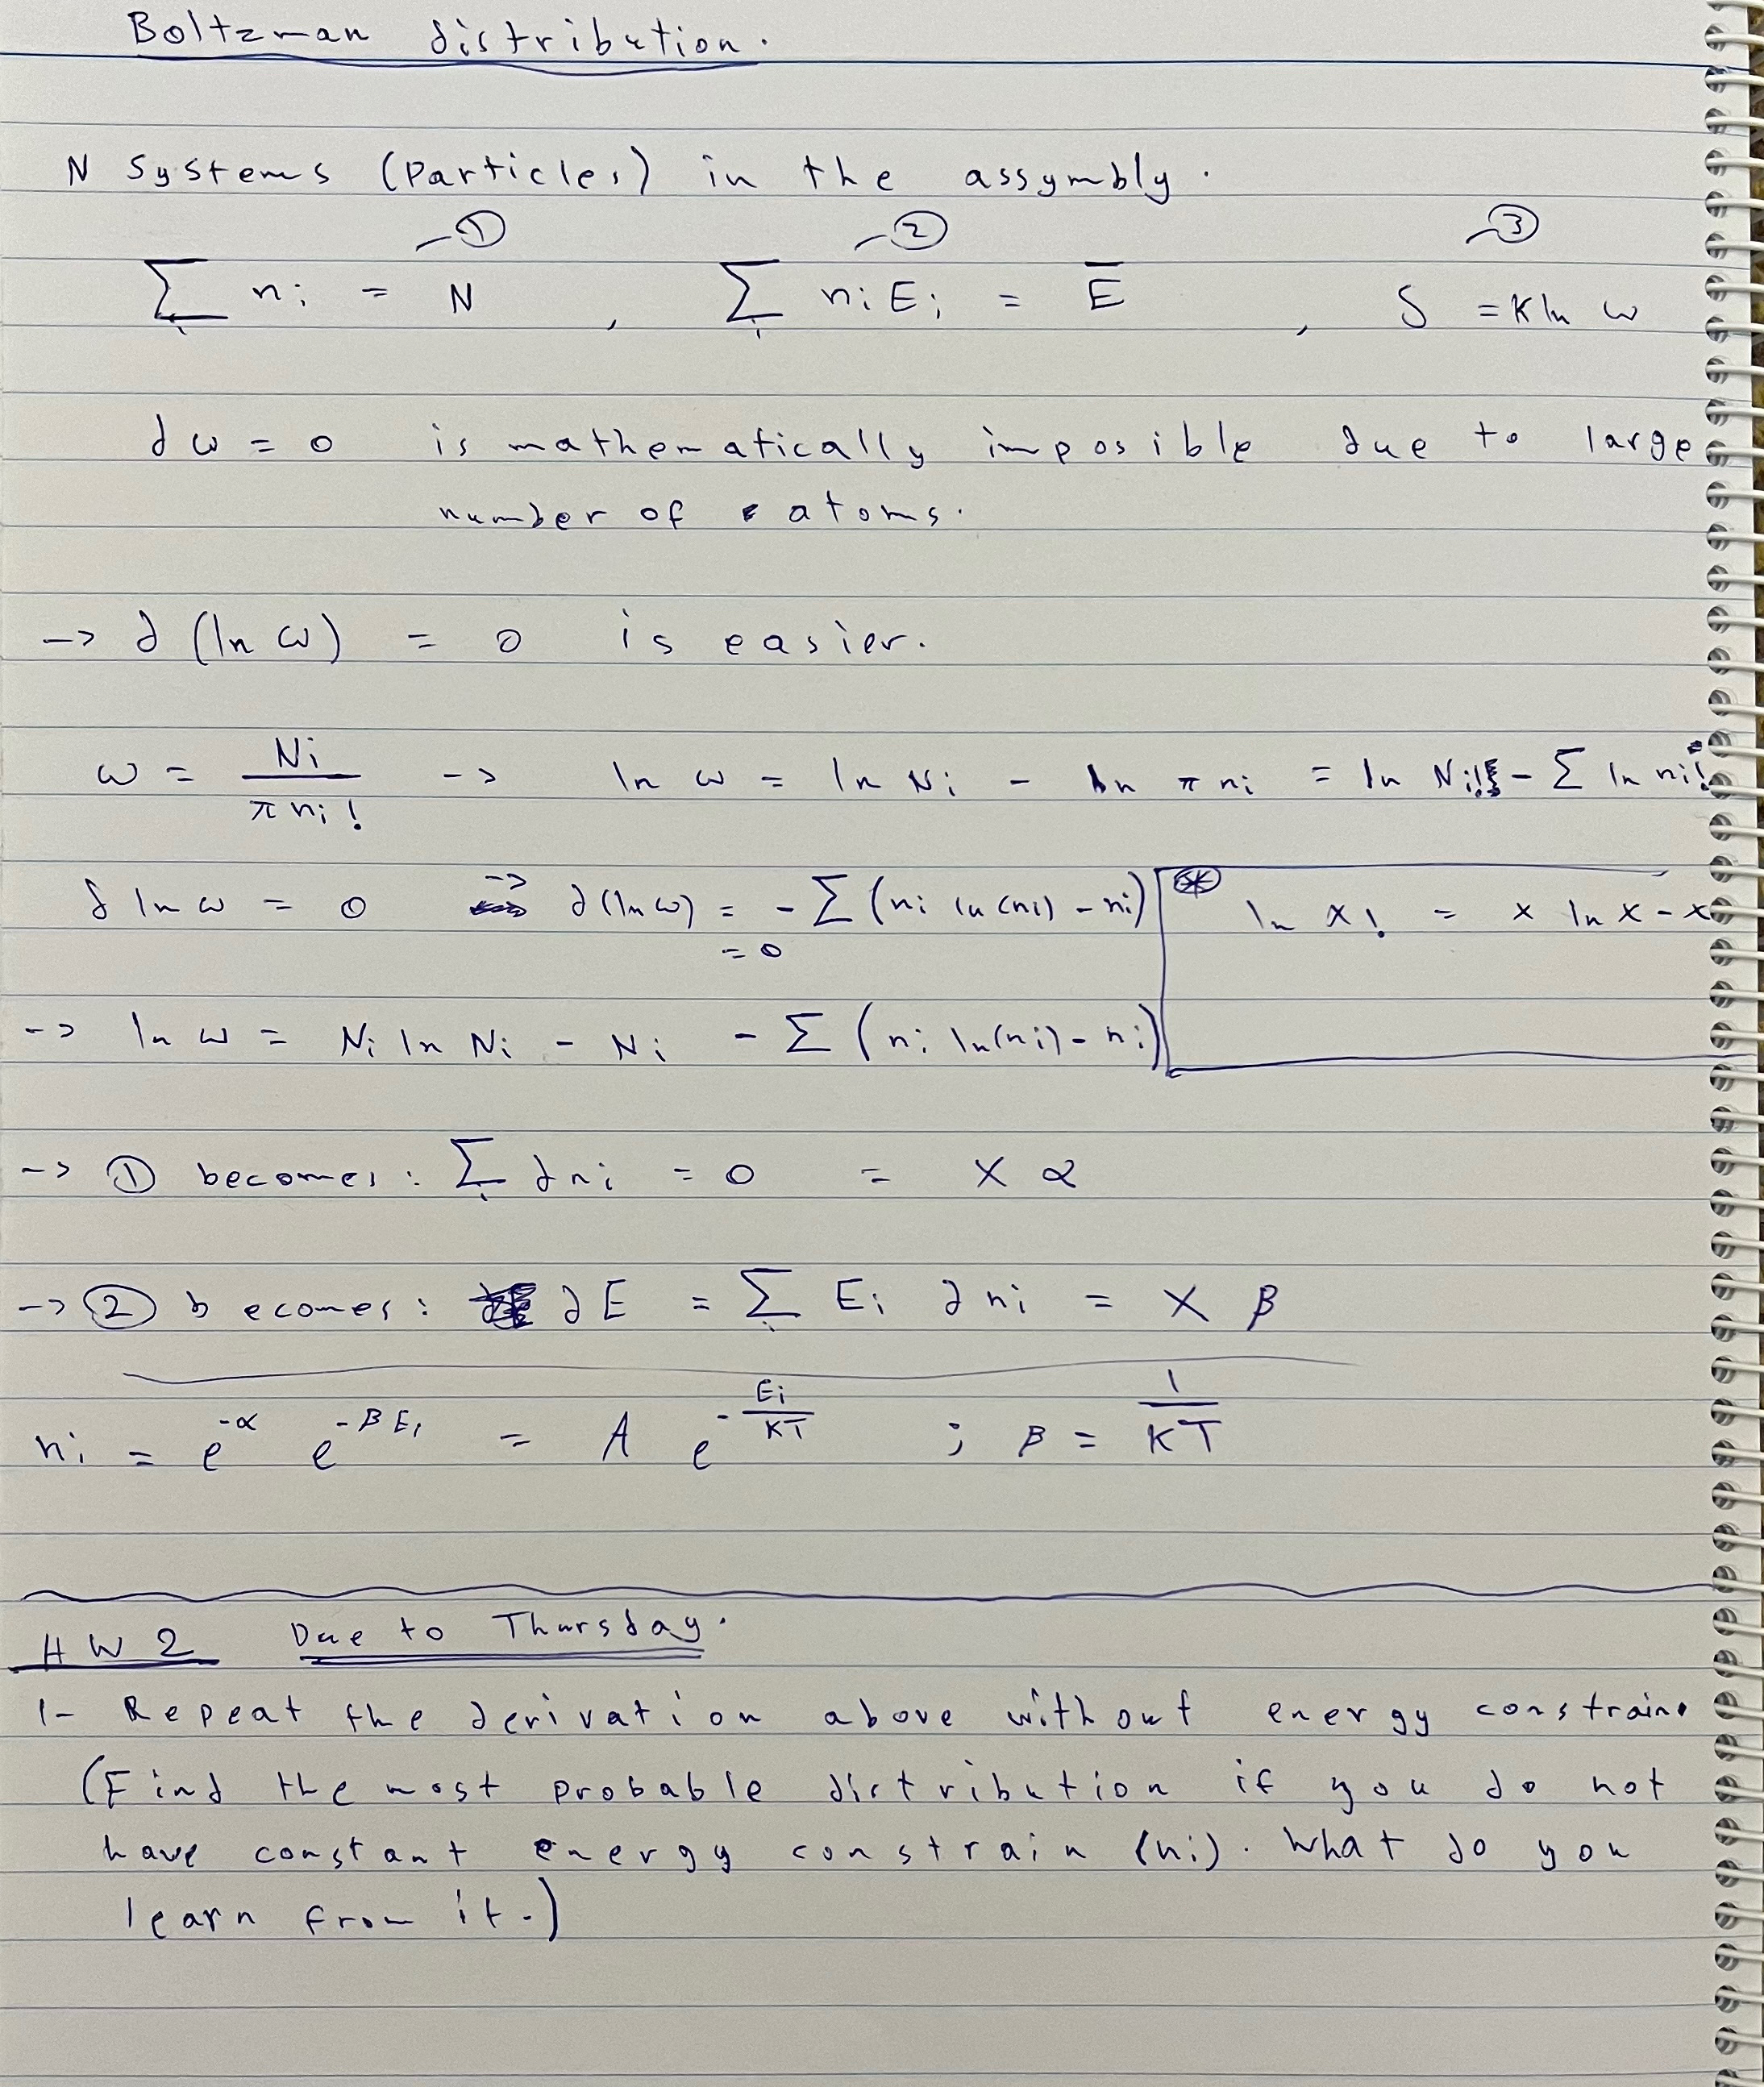 Boltzman distribution.
N Systems (Particles) in the assymbly.
① ② ③
∑i ni = N , ∑i ni Ei = E̅ , S = K ln ω
∂ω = 0 is mathematically imposible due to large
number of atoms.
-> ∂(ln ω) = 0 is easier.
ω = Ni / π ni! -> ln ω = ln Ni - ln π ni = ln Ni! - ∑ ln ni!
δ ln ω = 0 -> ∂(ln ω) = - ∑ (ni ln(ni) - ni) = 0
⊛ ln x! = x ln x - x
-> ln ω = Ni ln Ni - Ni - ∑ (ni ln(ni) - ni)
-> ① becomes: ∑i ∂ni = 0 = X α
-> ② becomes: ∂E = ∑i Ei ∂ni = X β
ni = e^-α e^-βEi = A e^-Ei/KT ; β = 1/KT
HW2 Due to Thursday.
1- Repeat the derivation above without energy constrain.
(Find the most probable distribution if you do not
have constant energy constrain (ni). What do you
learn from it.)